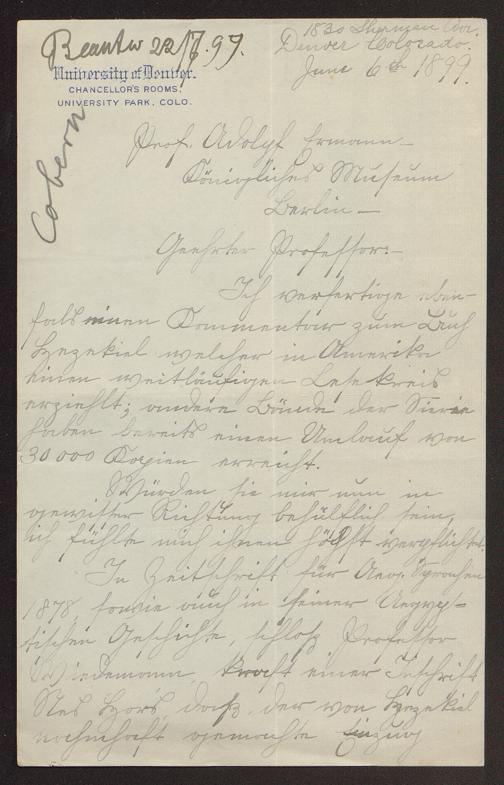 Beantw 22/7.99.
1830 Sherman Ave.
Denver Colorado.
June 6th 1899.
University of Denver.
CHANCELLOR'S ROOMS,
UNIVERSITY PARK, COLO.
Cobern
Prof. Adolf Ermann—
Königliches Museum
Berlin—
Geehrter Professor:—
Ich verfertige eben-
falls einen Kommentar zum Buch
Hezekiel welcher in Amerika
einen weitläufigen Lesekreis
erziehlt; andere Bände der Serie
haben bereits einen Umlauf von
30 000 Kopien erreicht.
Würden sie mir nun in
gewisser Richtung behülflich sein,
ich fühlte mich ihnen höchst verpflichtet.
In Zeitschrift für Aeg. Sprachen
1878, sowie auch in seiner Aegyp-
tischen Geschichte, schloß Professor
Wiedemann, kraft einer Inschrift
Nes Hor's daß der von Hezekiel
nahmhaft gemachte Einzug